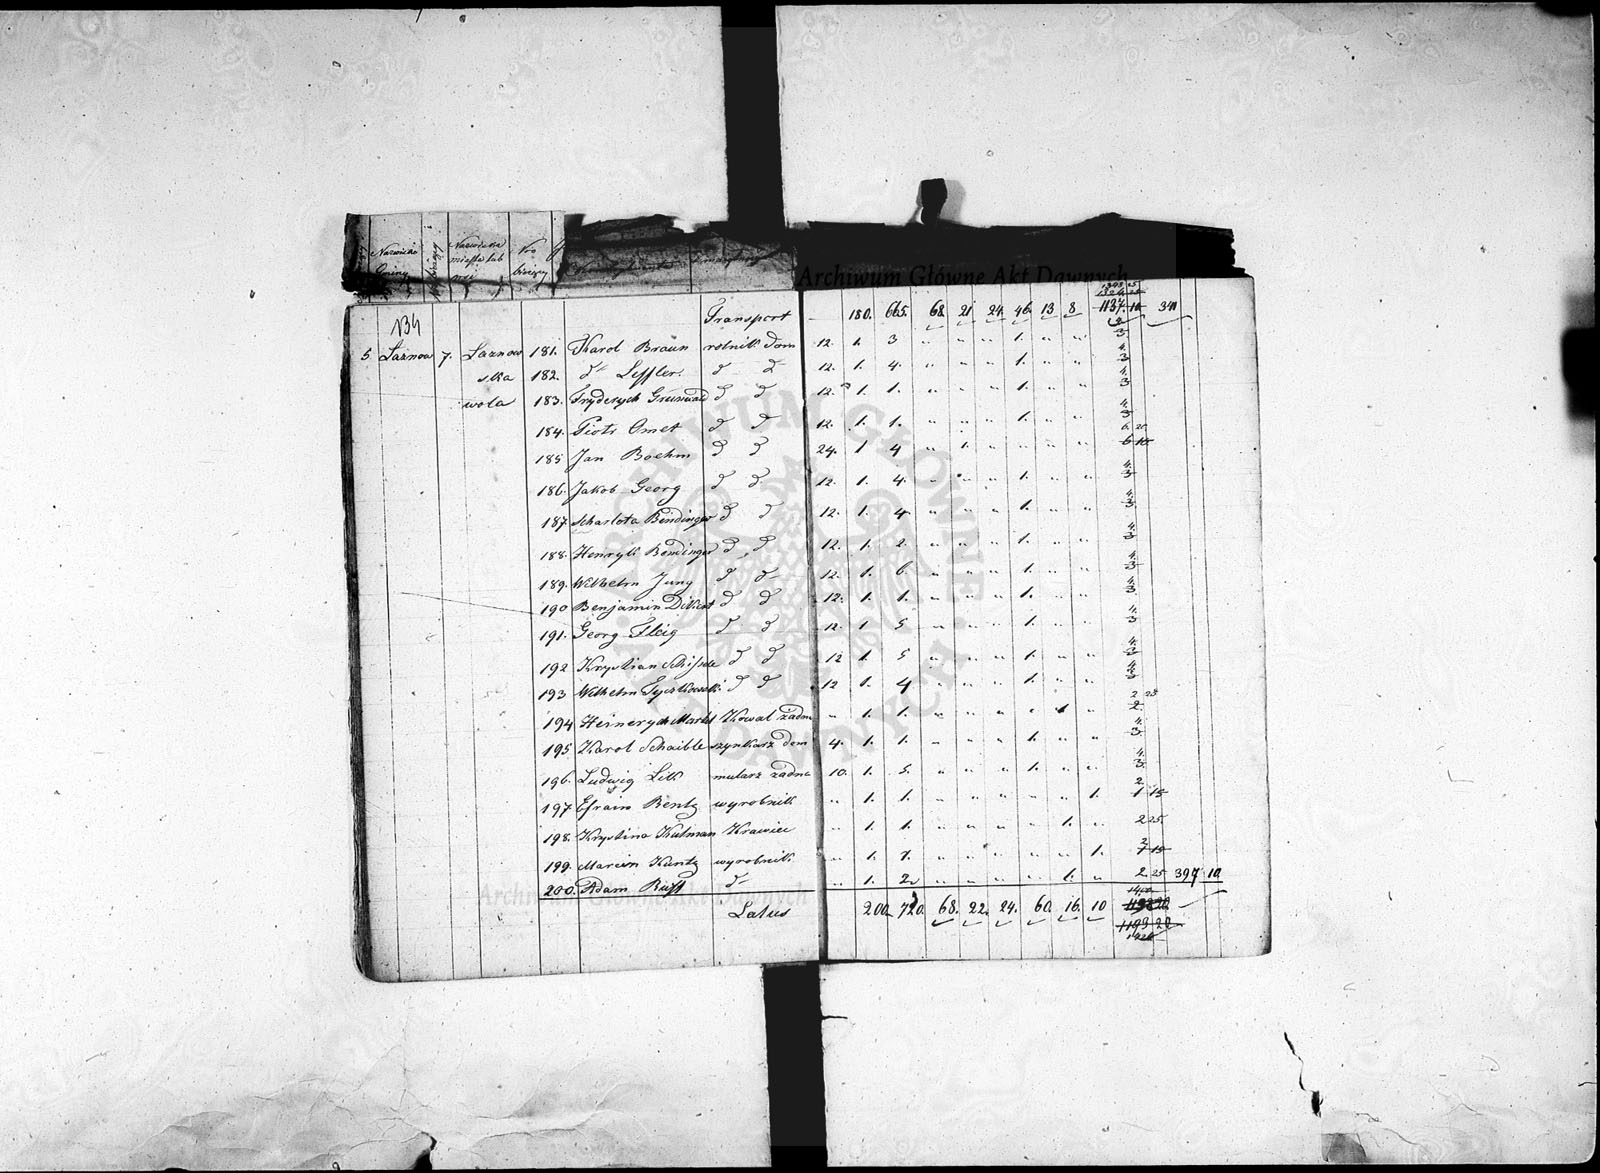 Nazwisko Gminy Nazwiska miasta lub wsi Nro bieżący
Archiwum Główne Akt Dawnych
134 Transport 180. 665. 68 21 24. 46. 13 8 1137. 10 341
5 Łaznow 7. Łaznow 181. Karol Bräun rolnik dom 12. 1. 3 " " " 1. " " 3
ska 182. dto Leffler. d d 12. 1. 4. " " " 1. " " 4. 3
wola 183. Fryderych Grünwald d d 12. 1. 1. " " " 1. " " 4. 3
184. Piotr Omet d d 12. 1. 1. " " " 1. " " 4. 3
185 Jan Boehm d d 24. 1 4 " 1. " " " " 6. 20 6 10
186. Jakob Georg d d 12. 1. 4. " " " 1. " " 4. 3
187 Scharlota Bendinger d d 12. 1. 4 " " " 1. " " 4. 3.
188. Henryk Bendinger d d 12. 1. 2. " " " 1. " " 4. 3
189. Wilhelm Jung d d 12. 1. 6. " " " 1. " " 4. 3
190 Benjamin Dikert d d 12. 1. 1. " " " 1. " " 4. 3
191. Georg Fleig d d 12. 1 5 " " " 1. " " 4. 3
192 Krystian d d 12 1. 5 " " " 1. " " 4. 3
193 Wilhelm d d 12 1. 4 " " " 1. " " 4. 3
194 Heinerych Markl Kowal żadn " 1. 1. " " " " 1 " 2 25 2.
195 Karol Schaible szynkarz dom 4. 1. 1. " " " 1. " " 4. 3.
196. Ludwig Lik mularz żadne 10. 1. 5. " " " 1. " " 4. 3.
197 Efraim Bentz wyrobnik " 1. 1. " " " " " 1. 2 1 15
198. Krystina Kulman Krawiec " 1. 1. " " " " 1. " 2 25
199. Marcin Kuntz wyrobnik " 1. 7. " " " " " 1. 2 1 15
200. Adam Rust d " 1. 2 " " " " 1. " 2. 25 397 10
Archiwum Główne Akt Dawnych
Latus 200. 720. 68. 22. 24. 60. 16. 10 1193 20
ARCHIWUM GŁÓWNE AKT DAWNYCH